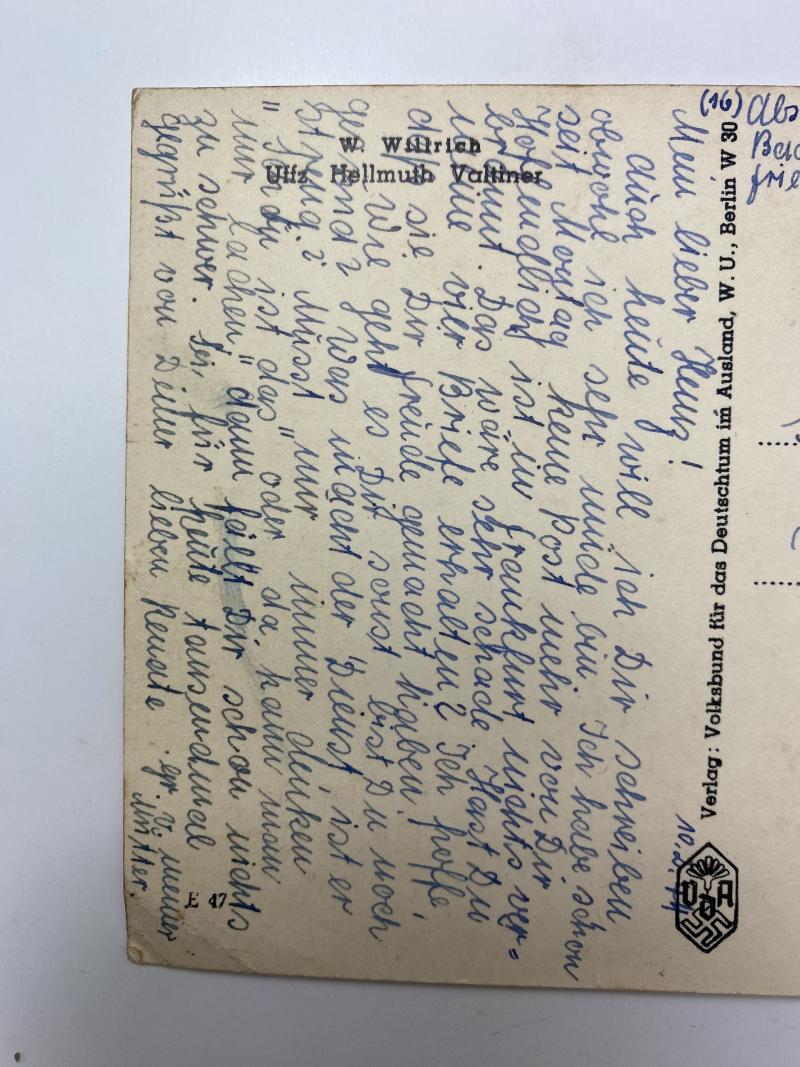 W. Willrich
Uffz. Hellmuth Valtiner
E 47
Verlag: Volksbund für das Deutschtum im Ausland, W. U., Berlin W 30
VDA
(16) Abs
Bad
frie
10.2.44
Mein lieber Heinz!
auch heute will ich Dir schreiben
obwohl ich sehr müde bin. Ich habe schon
seit Montag keine Post mehr von Dir
Hoffendlich ist in Frankfurt nichts ver=
brannt. Das wäre sehr schade. Hast Du
meine vier Briefe erhalten? Ich hoffe,
daß sie Dir Freude gemacht haben.
Wie geht es Dir sonst bist Du noch
gesund? Was macht der Dienst, ist er
streng? Müsst nur immer denken
" ist das" oder " da kann man
nur lachen" dann fällt Dir schon nichts
zu schwer. Sei für heute tausendmal
gegrüßt von Deiner lieben Renate. gr. v. meiner
Mutter